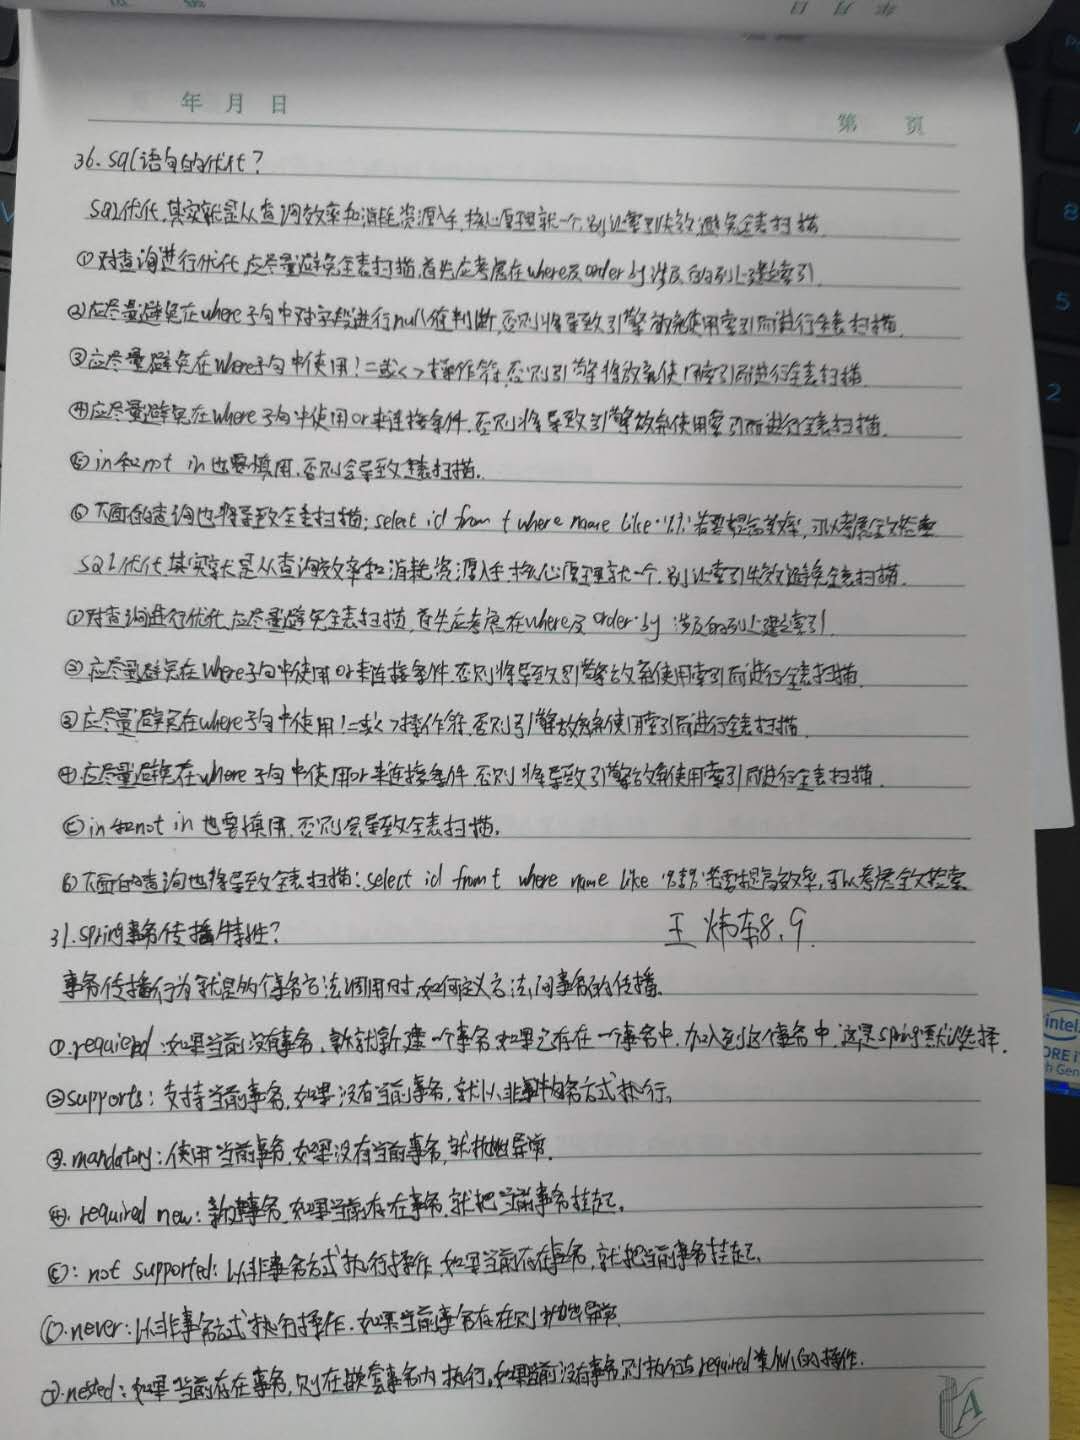 年 月 日
第 页
36. sql语句的优化?
SQL优化,其实就是从查询效率和消耗资源入手,核心原理就一个,别让索引失效,避免全表扫描.
①对查询进行优化,应尽量避免全表扫描,首先应考虑在where及order by涉及的列上建立索引.
②应尽量避免在where子句中对字段进行null值判断,否则将导致引擎放弃使用索引而进行全表扫描.
③应尽量避免在where子句中使用!=或<>操作符,否则引擎将放弃使用索引而进行全表扫描.
④应尽量避免在where子句中使用or来连接条件,否则将导致引擎放弃使用索引而进行全表扫描.
⑤in和not in也要慎用,否则会导致全表扫描.
⑥下面的查询也将导致全表扫描:select id from t where name like 若要提高效率,可以考虑全文检索
SQL优化,其实就是从查询效率和消耗资源入手,核心原理就一个,别让索引失效避免全表扫描.
①对查询进行优化,应尽量避免全表扫描,首先应考虑在where及order by 涉及的列上建立索引.
②应尽量避免在where子句中使用or来连接条件,否则将导致引擎放弃使用索引而进行全表扫描.
③应尽量避免在where子句中使用!=或<>操作符,否则引擎放弃使用索引而进行全表扫描.
④应尽量避免在where子句中使用or来连接条件,否则将导致引擎放弃使用索引而进行全表扫描.
⑤in和not in也要慎用,否则会导致全表扫描.
⑥下面的查询也将导致全表扫描:select id from t where name like 若要提高效率,可以考虑全文检索
31. spring事务传播特性? 王炜东8.9.
事务传播行为就是多个事务方法调用时,如何定义方法间事务的传播.
①.required:如果当前没有事务,就新建一个事务,如果已存在一个事务中,加入到这个事务中.这是spring默认选择.
②supports:支持当前事务,如果没有当前事务,就以非事务方式执行。
③.mandatory:使用当前事务,如果没有当前事务,就抛出异常.
④.required new:新建事务,如果当前存在事务,就把当前事务挂起。
⑤:not supported:以非事务方式执行操作,如果当前存在事务,就把当前事务挂起.
⑥.never:以非事务方式执行操作.如果当前事务存在则抛出异常.
⑦.nested:如果当前存在事务,则在嵌套事务内执行。如果当前没有事务,则执行与required类似的操作.
A
intel